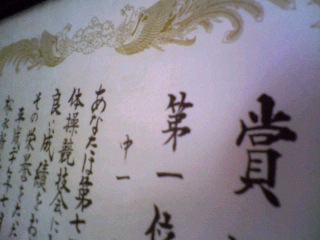 賞
第一位
中一
あなたは第七
体操競技会に
良い成績をお
その栄誉をたた